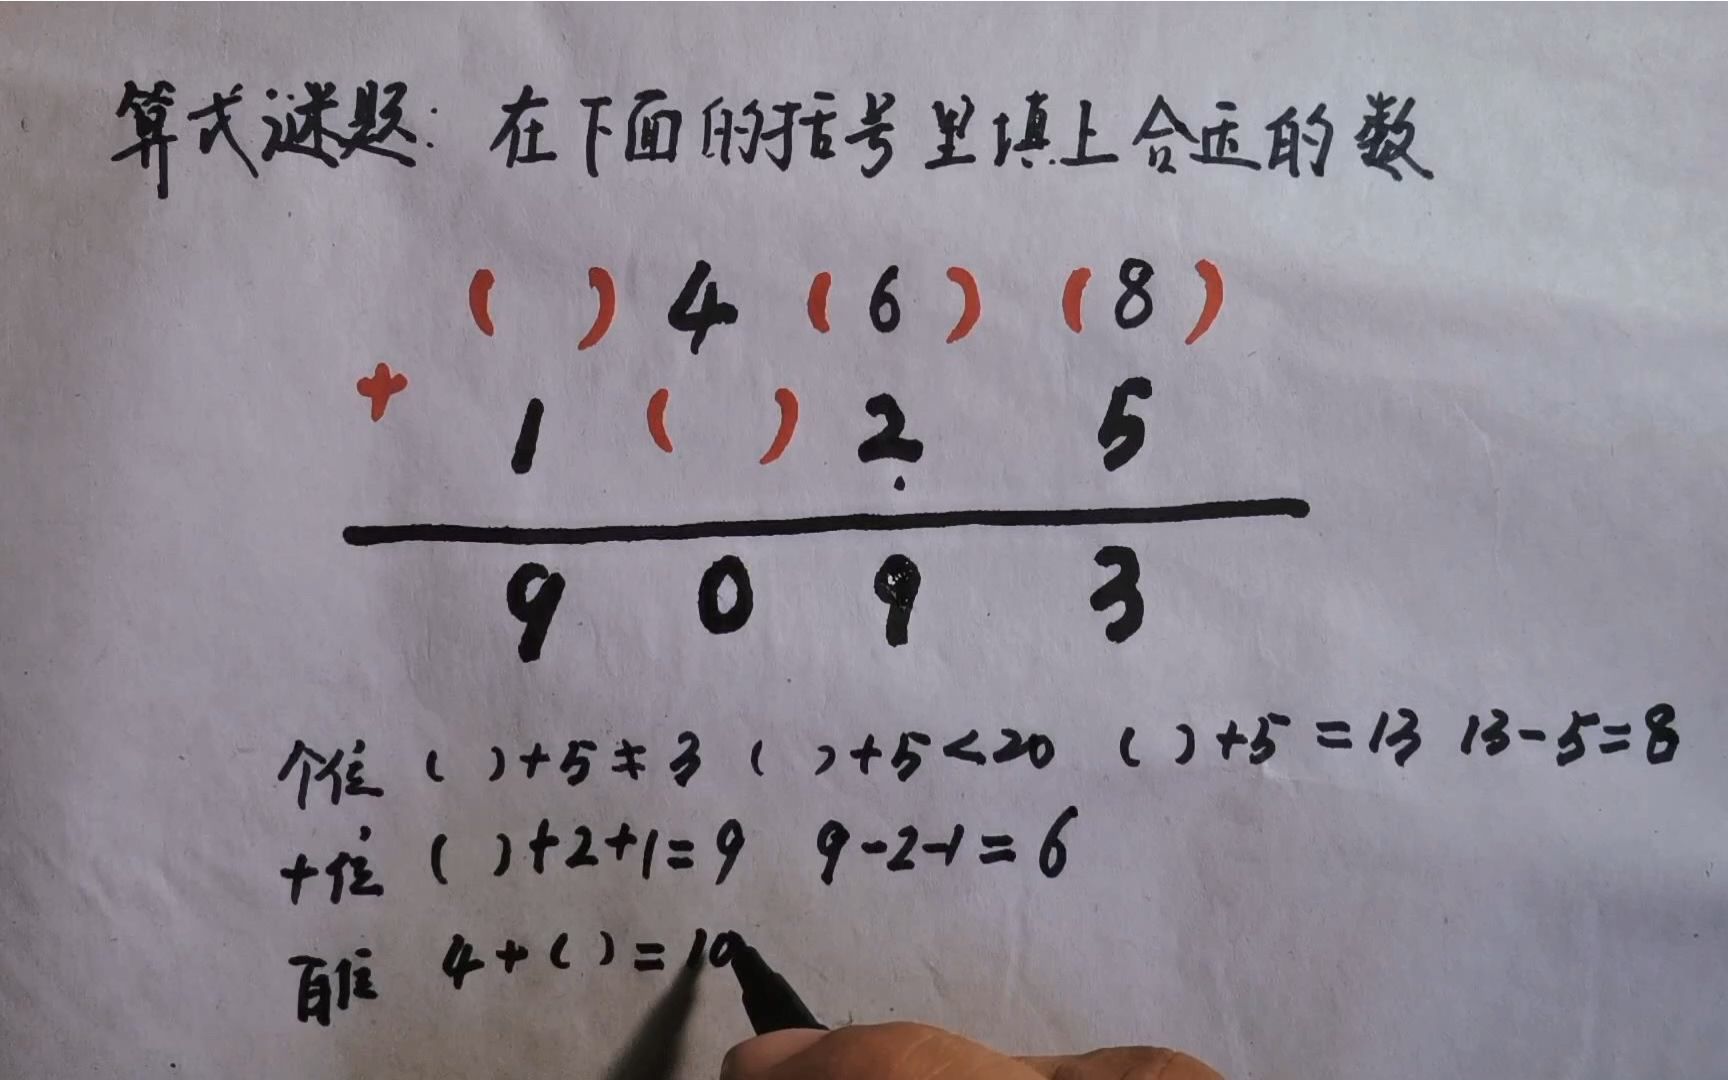 算式谜题：在下面的括号里填上合适的数
( ) 4 (6) (8)
+ 1 ( ) 2 5
9 0 9 3
个位 ( )+5≠3 ( )+5<20 ( )+5=13 13-5=8
十位 ( )+2+1=9 9-2-1=6
百位 4+( )=10